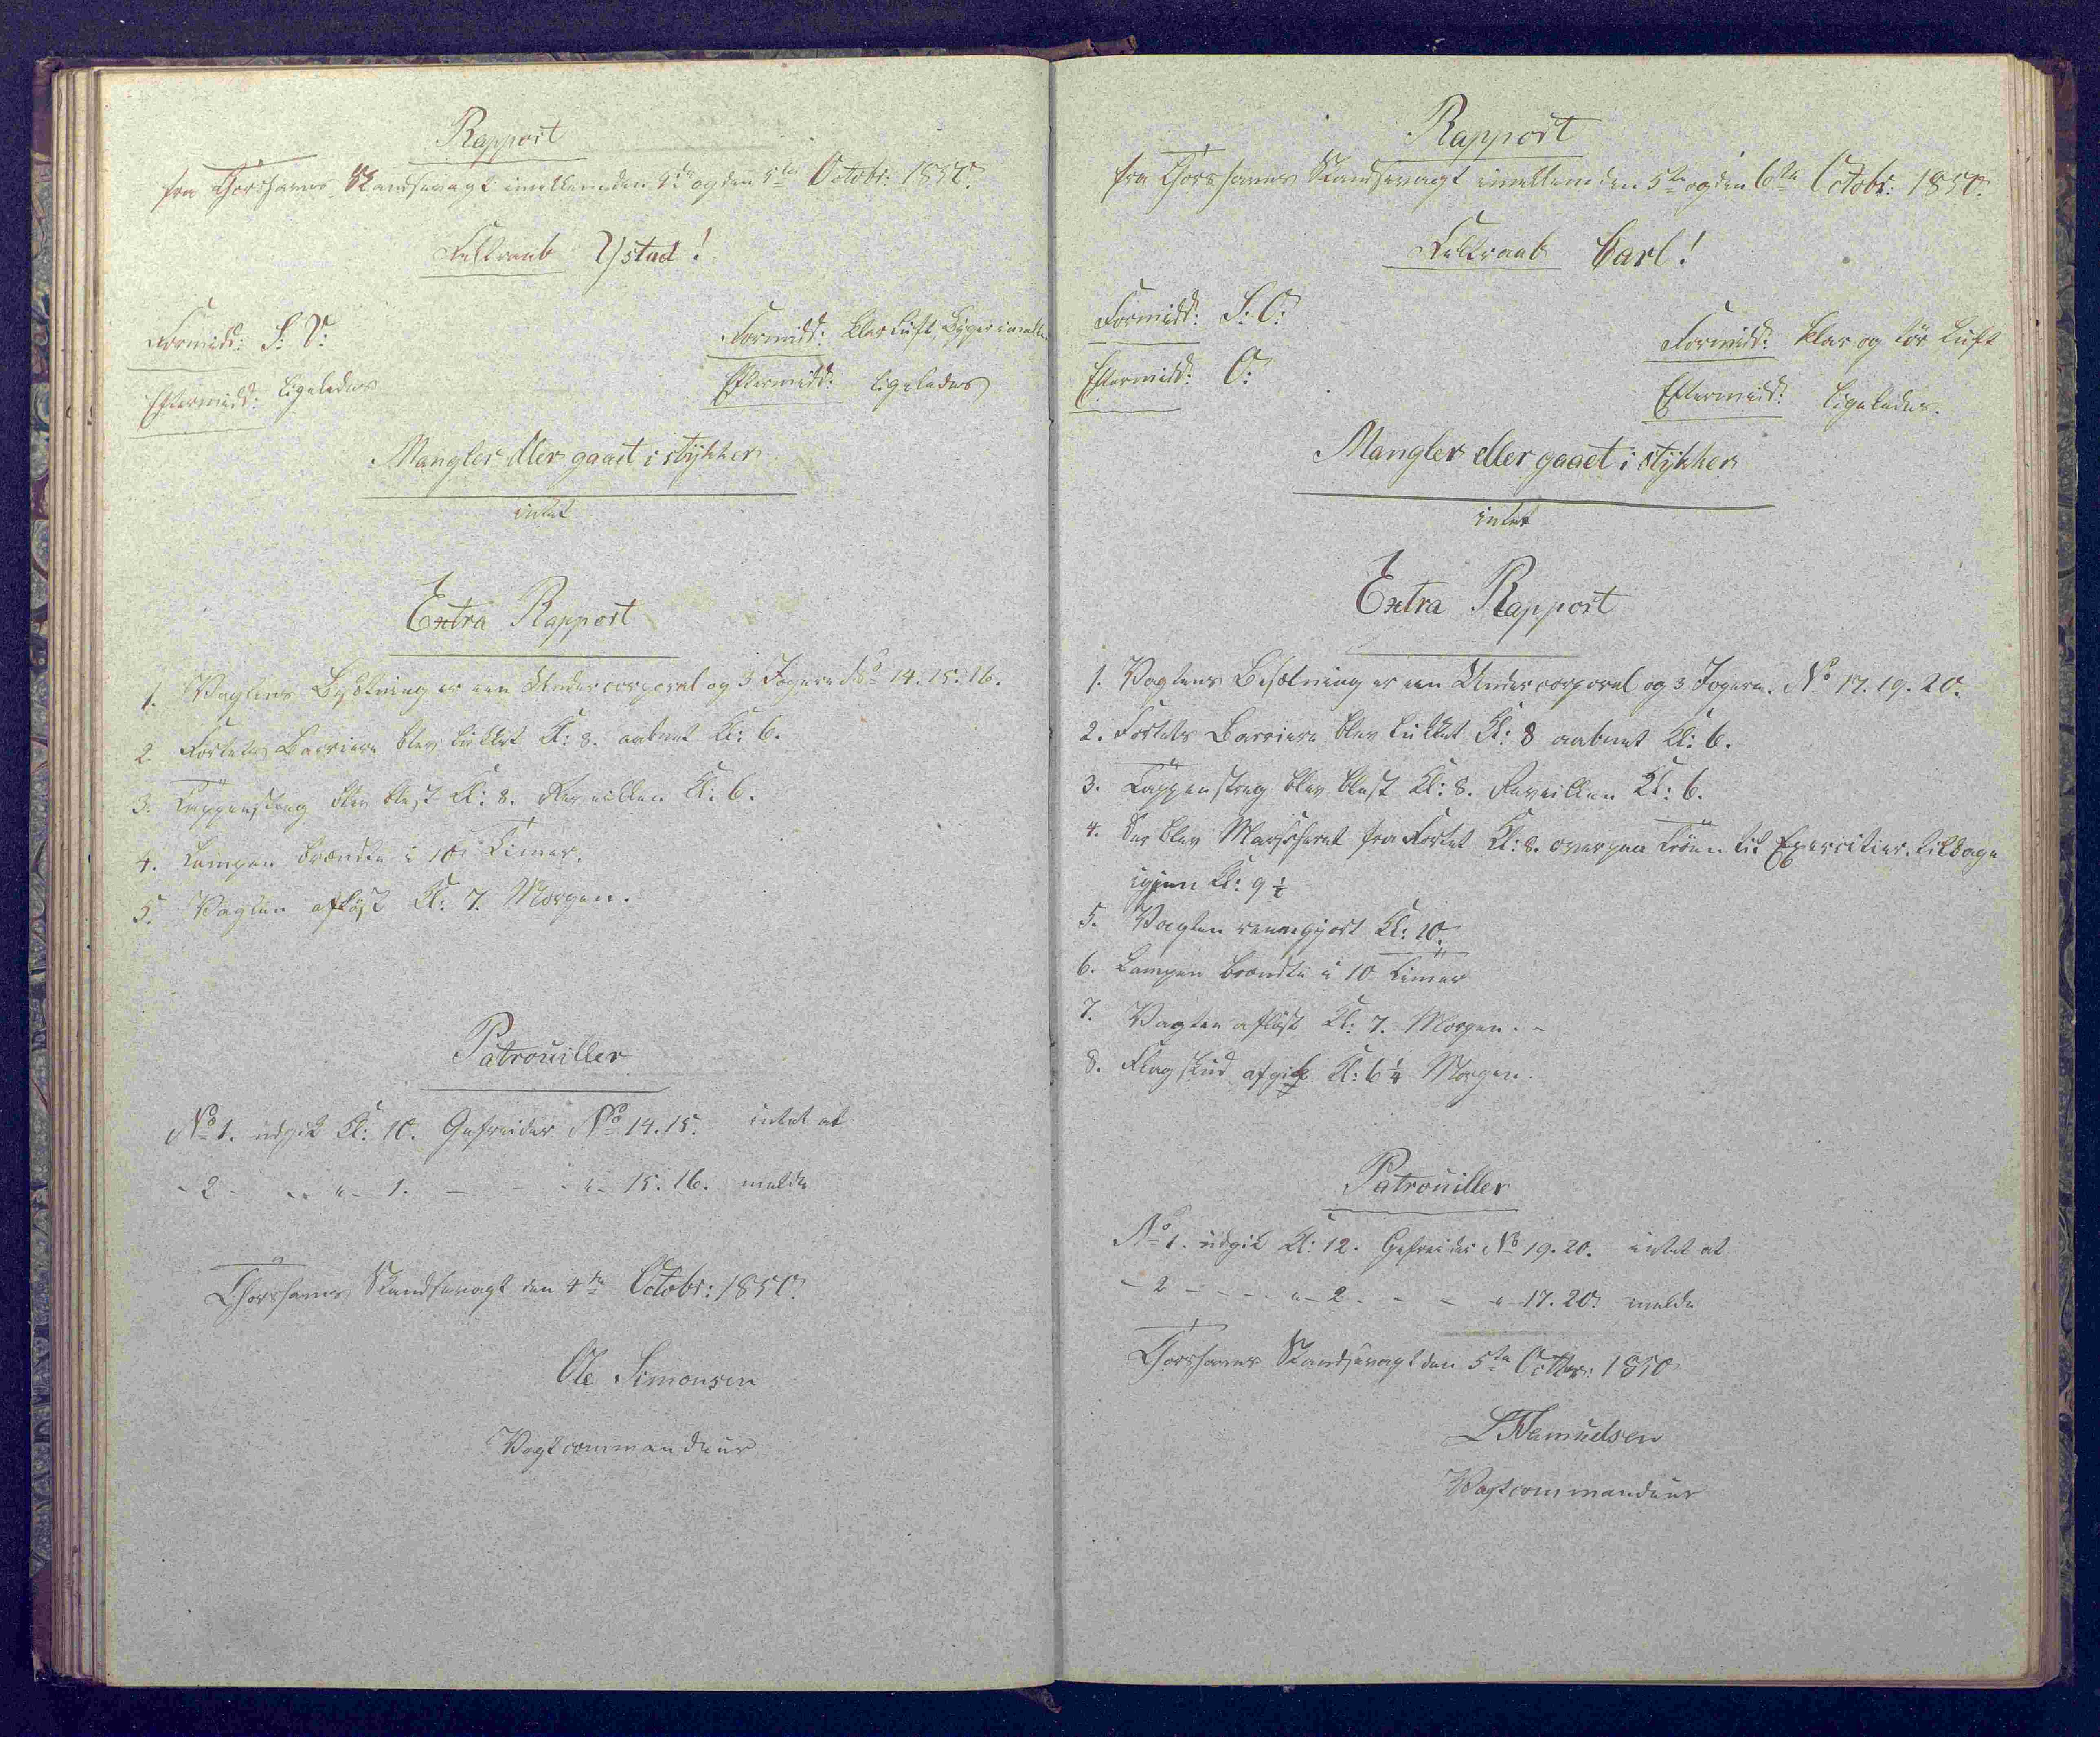 Rapport
fra Thorshavns Skandsevagt imellem den 4de og den 5te Octobr: 1850.
Feltraab Ystad!
Formidd: S: V:
Formidd: klar Luft, Byger imellem
Eftermidd: ligeledes
Eftermidd: ligeledes
Mangler eller gaaet i stykker
intet
Extra Rapport
1. Vagtens Besætning er een Undercorporal og 3 Jægere No 14. 15. 16.
2. Fortets Barriere blev lukket Kl: 8. aabnet Kl: 6.
3. Tappenstreg blev blæst Kl: 8. Reveillen Kl: 6.
4. Lampen brændte i 10 Timer.
5. Vagten afløst Kl: 7. Morgen.
Patrouiller
No 1. udgik Kl: 10. Gefreider No 14. 15. intet at
- 2 - - " - 1. - - " - 15. 16. melde
Thorshavns Skandsevagt den 4de Octobr: 1850.
Ole Simonsen
Vagtcommandeur
Rapport
fra Thorshavns Skandsevagt imellem den 5te og den 6te Octobr: 1850.
Feltraab Carl!
Formidd: S: O:
Formidd: klar og tør Luft
Eftermidd: O:
Eftermidd: ligeledes.
Mangler eller gaaet i stykker
intet
Extra Rapport
1. Vagtens Besætning er een Undercorporal og 3 Jægere. No 17. 19. 20.
2. Fortets Barriere blev lukket Kl: 8 aabnet Kl: 6.
3. Tappenstreg blev blæst Kl: 8. Reveillen Kl: 6.
4. Der blev Marscheret fra Fortet Kl: 8. over paa til Exercitier. tilbage
igjen Kl: 9 ½
5. Vagten reengjort Kl: 10.
6. Lampen brændte i 10 Timer
7. Vagten afløst Kl: 7. Morgen. -
8. Flagskud afgik Kl: 6 ¼ Morgen.
Patrouiller
No 1. udgik Kl: 12. Gefreider No 19. 20. intet at
- 2 - - - " - 2 - - - " 17. 20. melde
Thorshavns Skandsevagt den 5te Octbr: 1850
Vagtcommandeur